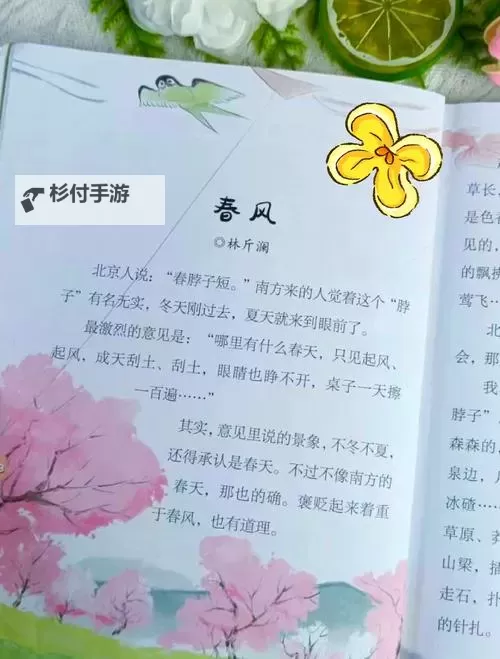 杉付手游
春风
◎林斤澜
北京人说：“春脖子短。”南方来的人觉着这个“脖
子”有名无实，冬天刚过去，夏天就来到眼前了。
最激烈的意见是：“哪里有什么春天，只见起风、
起风，成天刮土、刮土，眼睛也睁不开，桌子一天擦
一百遍……”
其实，意见里说的景象，不冬不夏，
还得承认是春天。不过不像南方的
春天，那也的确。褒贬起来着重
于春风，也有道理。
草长，
是色
见的，
的飘拂
莺飞…
北
会，那
我
脖子”
森森的，
泉边，
冰碴…
草原、莽
山梁，插
走石，扑
的针扎。